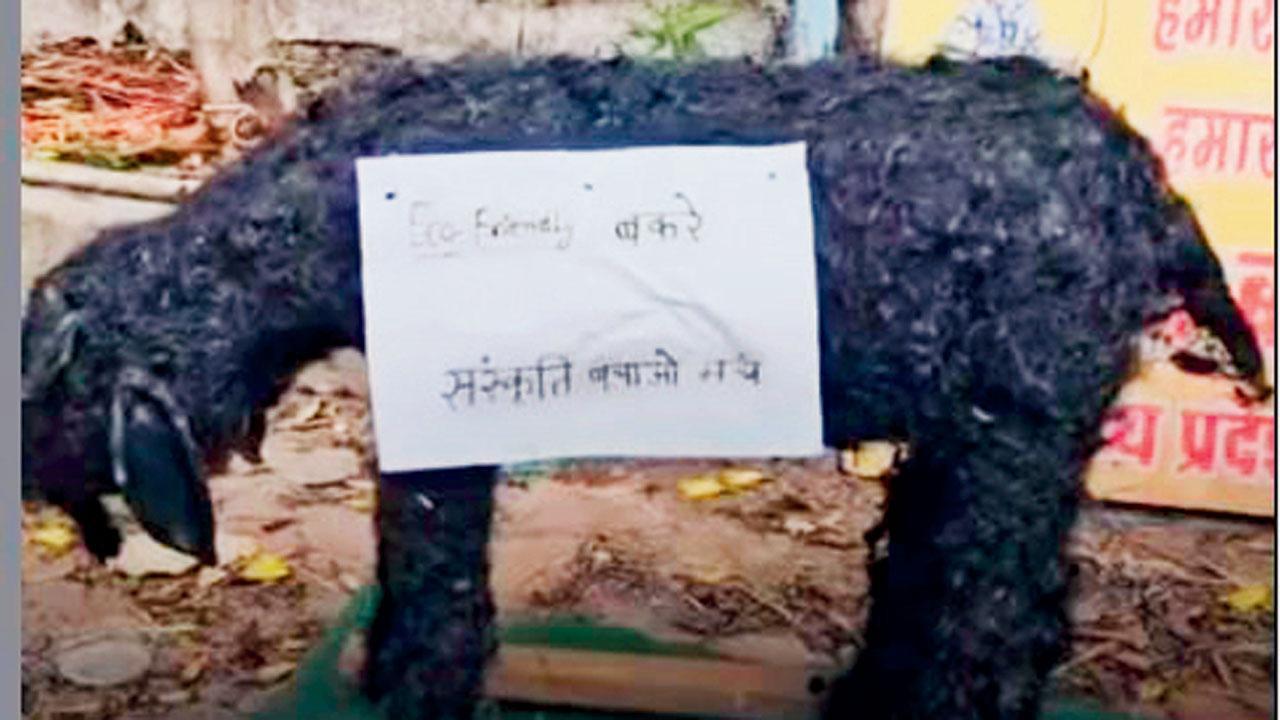 Eco-Friendly बकरे
संस्कृति बचाओ मंच
हमार
हमार
प्रदे